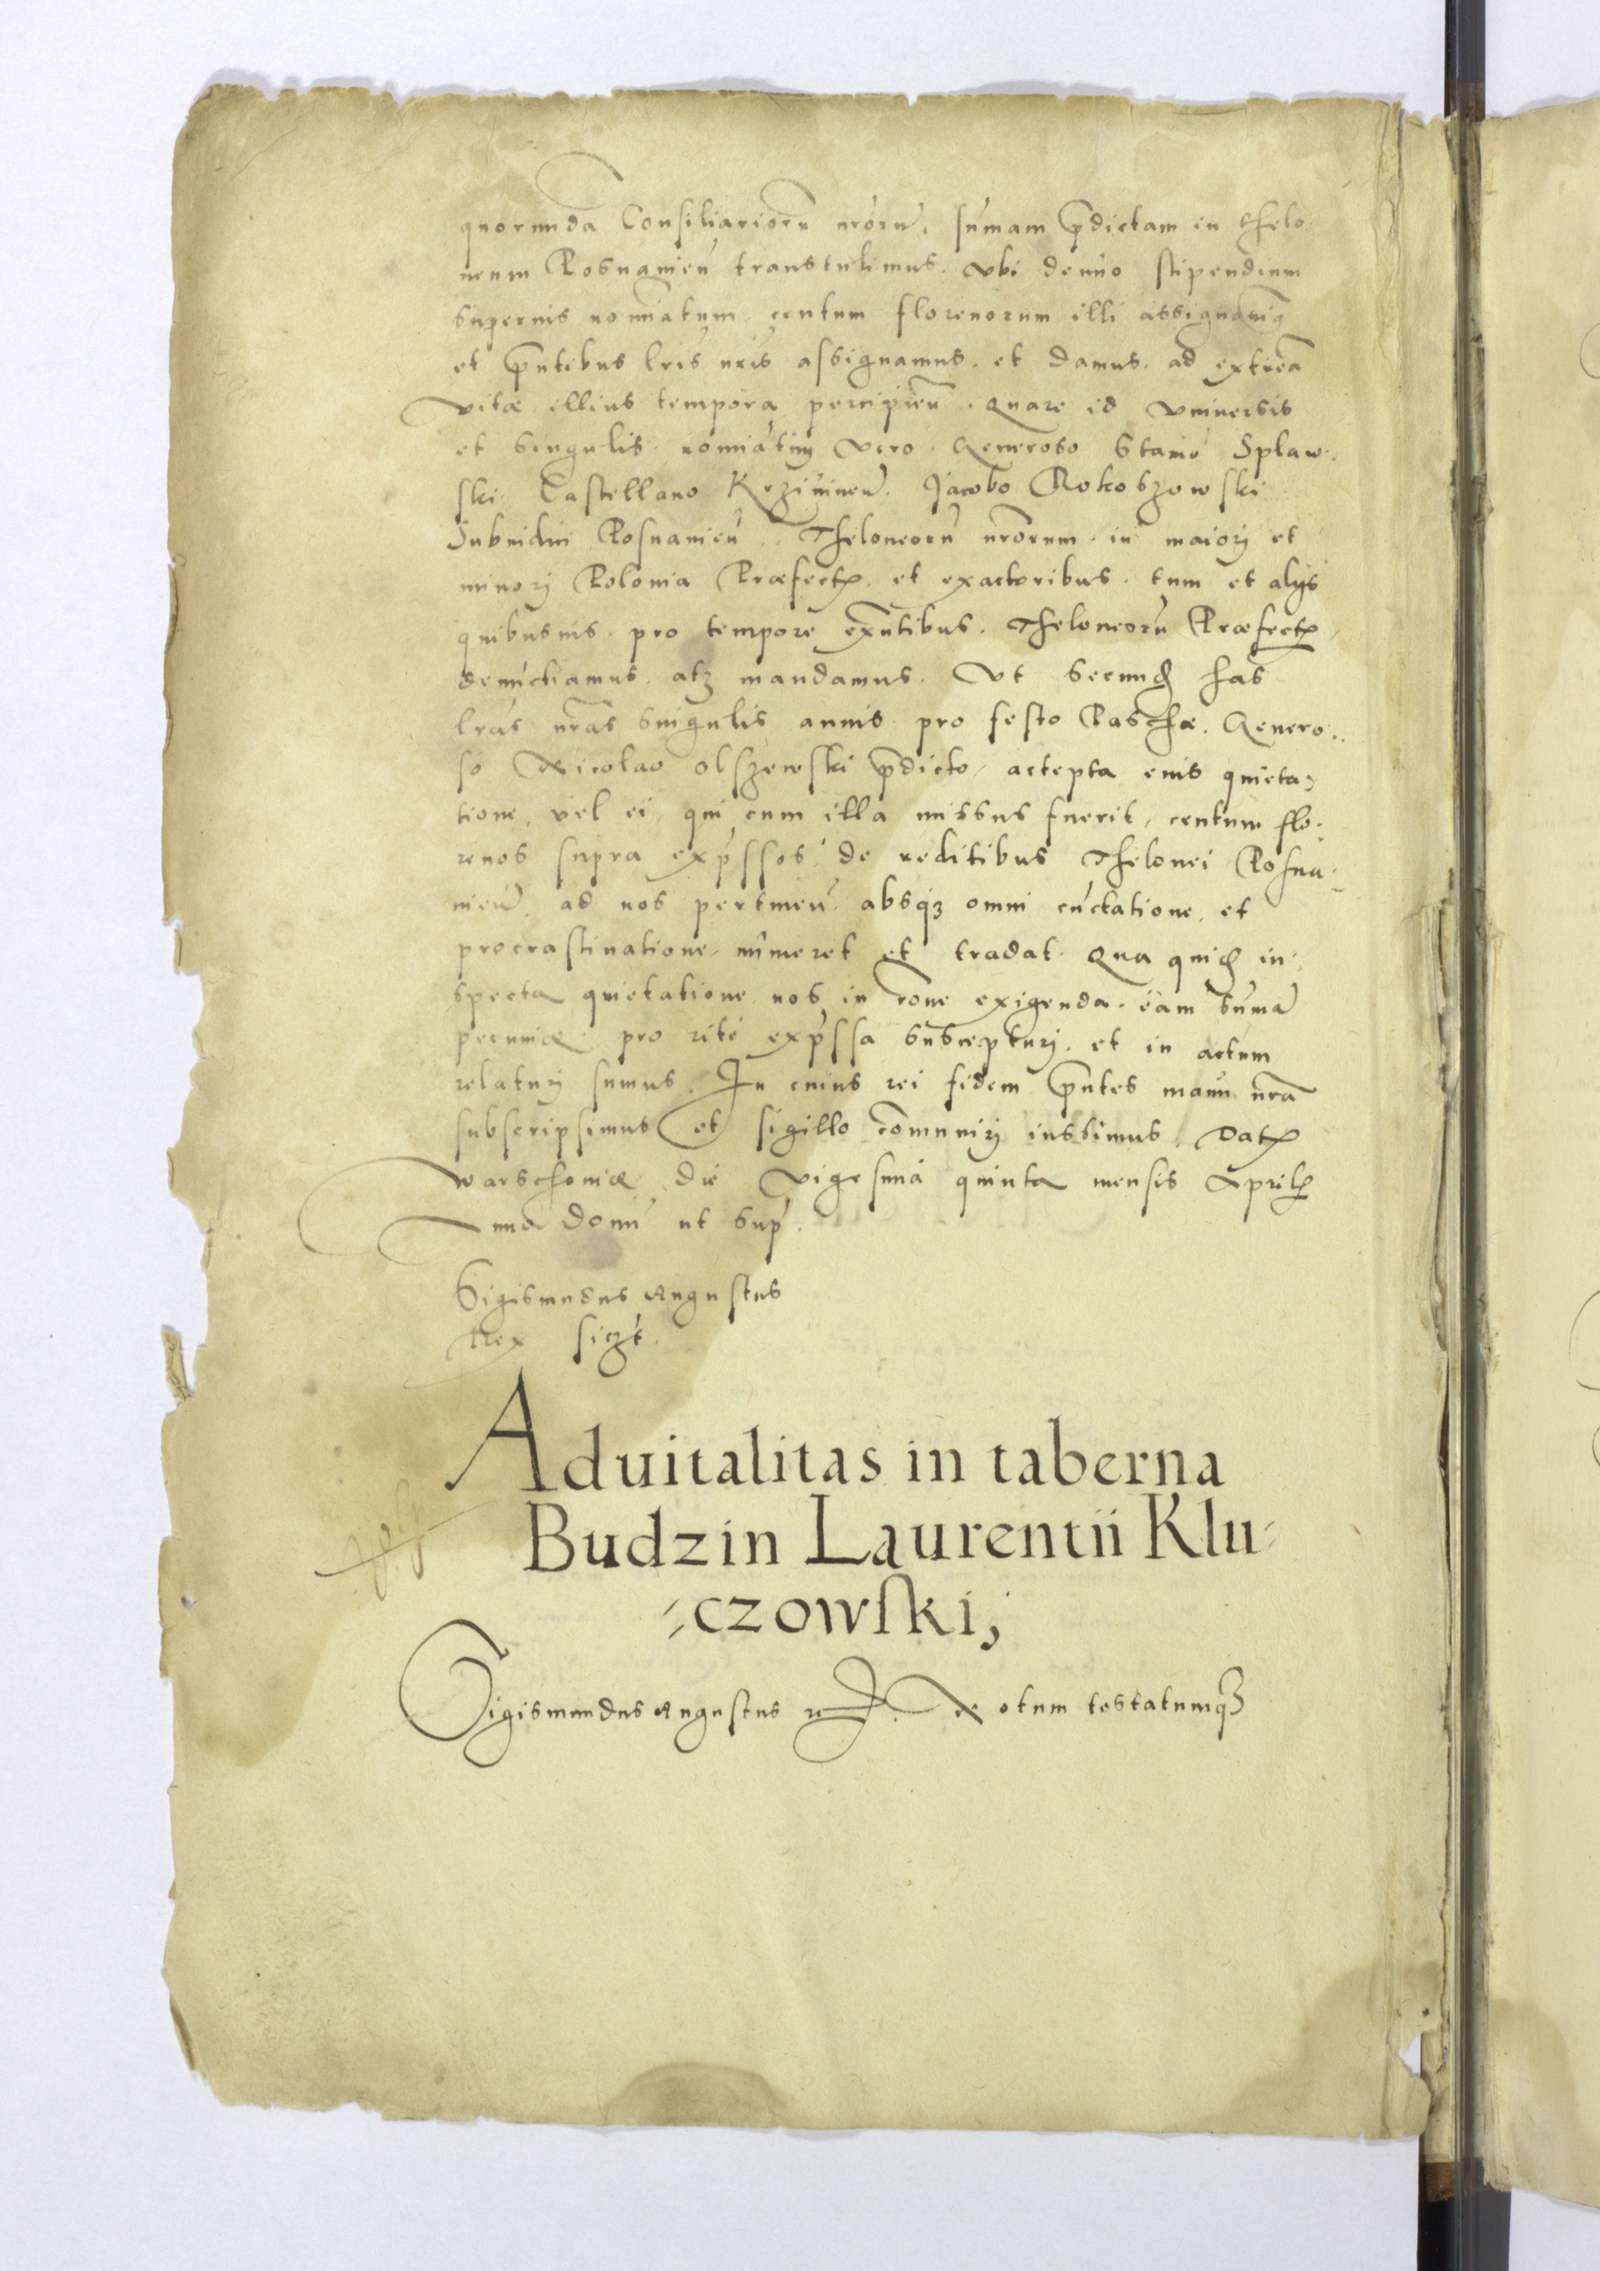 quorunda Consiliarioru nroru. sumam pdictam in thelo
neum Posnanien transtulimus. Vbi denuo stipendium
superius nominatum centum florenorum illi assignamq
et pntibus lris nris assignamus. et damus. ad extrema
vitæ illius tempora percipien. Quare id Vniuersis
et singulis. nominatim Vero. Generoso Stanio Splaw.
ski Castellano Krziuinen. Jacobo Rokoszowski
Subiudici Posnanien. Theloneoru nrorum. in maiorj et
minorj Polonia Præfectis. et exactoribus. tum et alijs
quibusuis. pro tempore exntibus. Theloneoru Præfectis
denuctiamus. atq mandamus. Vt secund has
lras nras singulis annis pro festo Paschæ. Genero..
so Nicolao Olszewski pdicto. accepta eius quieta,
tione, vel ei, qui cum illa missus fuerit, centum flo.
renos supra expssos de reditibus Thelonei Posna.
nien. ad nos pertinen. absq omni cuctatione. et
procrastinatione. numeret et tradat. Qua quid in
specta quietatione nos in rone exigenda. eam suma
pecuniæ pro rite expssa suscepturj. et in actum
relaturj sumus. In cuius rei fidem pntes manu nra
subscripsimus et sigillo comunirj iussimus. Datis
Warschouiæ die Vigesima quinta mensis Aprilis
Anno Domi ut sup.
Sigismudus Augustus
Rex sszt
Aduitalitas in taberna
Budzin Laurentii Klu-
-czowski,
Sigismundus Augustus Notum testatumq